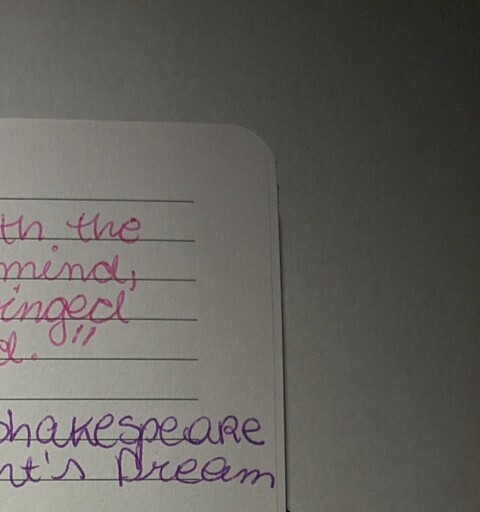 th the
mind,
inged
d."
Shakespeare
nt's Dream